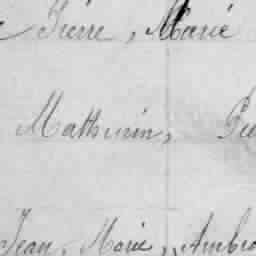 Pierre, Marie
Mathurin,
Jean, Marie, Ambro